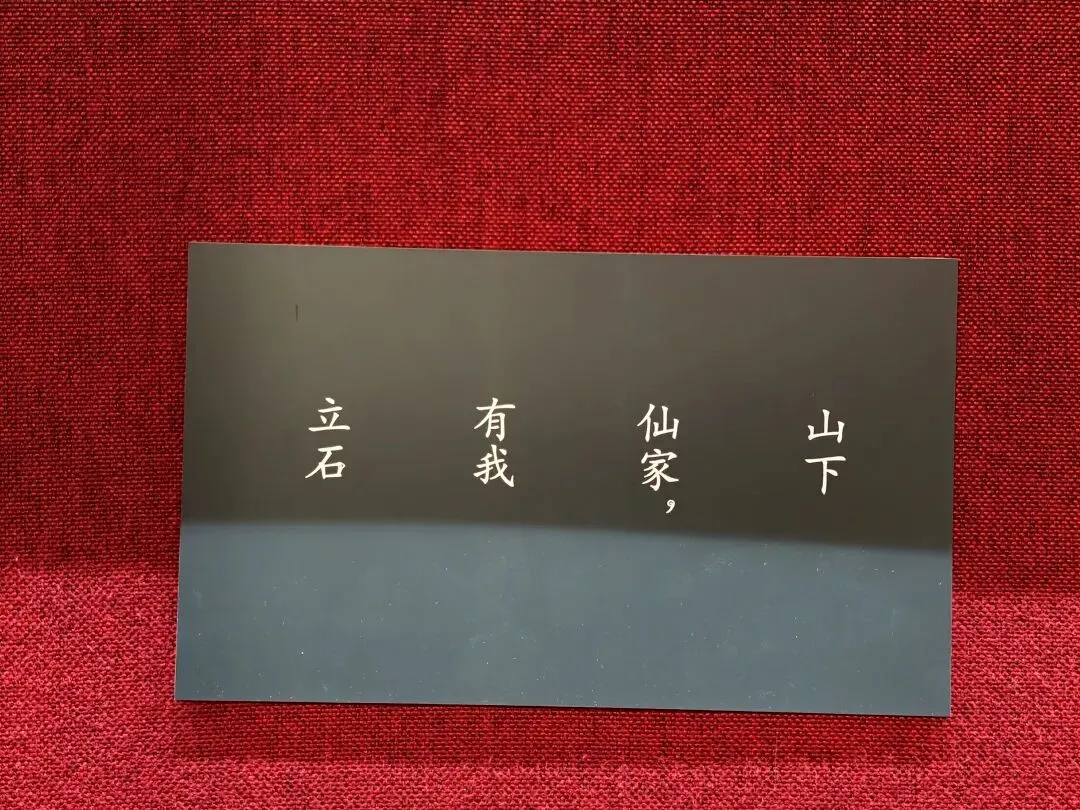 山下
仙家，
有我
立石